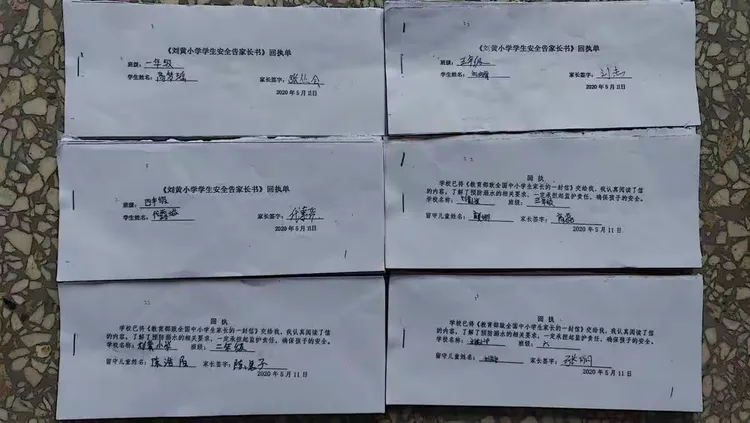 《刘黄小学学生安全告家长书》回执单
班级:一年级
学生姓名: 家长签字:
2020年5月11日
《刘黄小学学生安全告家长书》回执单
班级:五年级
学生姓名: 家长签字:
2020年5月11日
《刘黄小学学生安全告家长书》回执单
班级:四年级
学生姓名: 家长签字:
2020年5月11日
回执
学校已将《教育部致全国中小学生家长的一封信》交给我,我认真阅读了信
的内容,了解了预防溺水的相关要求,一定承担起监护责任,确保孩子的安全。
学校名称: 班级:三年级
留守儿童姓名: 家长签字:
2020年5月11日
回执
学校已将《教育部致全国中小学生家长的一封信》交给我,我认真阅读了信
的内容,了解了预防溺水的相关要求,一定承担起监护责任,确保孩子的安全。
学校名称:刘黄小学 班级:二年级
留守儿童姓名:陈浩 家长签字:陈
2020年5月11日
回执
学校已将《教育部致全国中小学生家长的一封信》交给我,我认真阅读了信
的内容,了解了预防溺水的相关要求,一定承担起监护责任,确保孩子的安全。
学校名称: 班级:六
留守儿童姓名: 家长签字:张
2020年5月11日